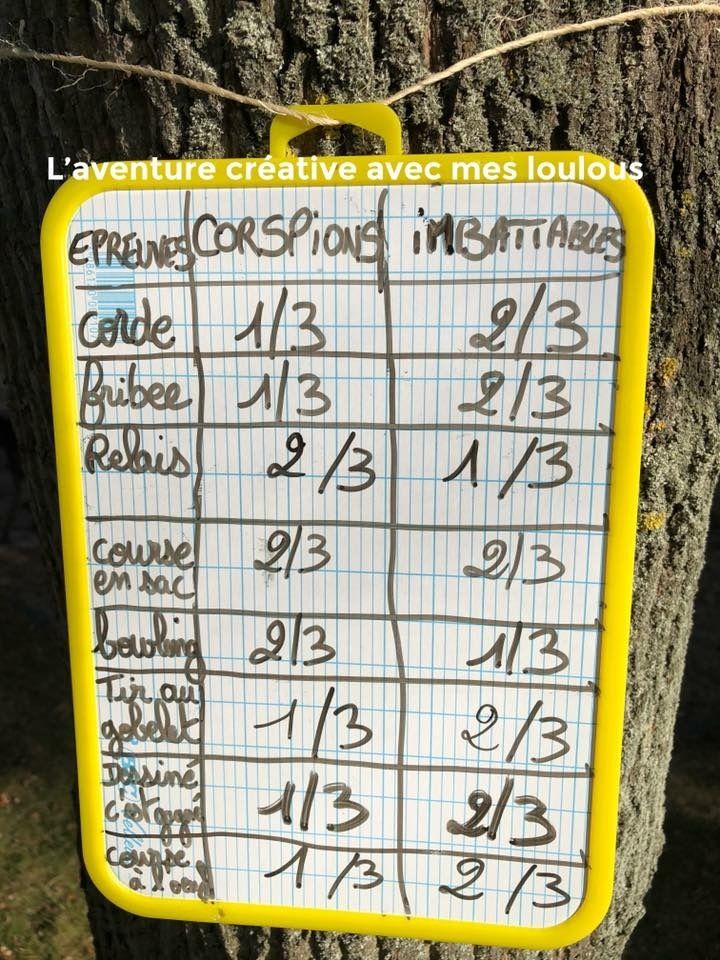 L'aventure créative avec mes loulous
EPREUVES CORSPIONS iMBATTABLES
corde 1/3 2/3
fribee 1/3 2/3
Relais 2/3 1/3
course 2/3 2/3
en sac
bowling 2/3 1/3
Tir au
gobelet 1/3 2/3
Dessiné
c'est gagné 1/3 2/3
couppe 1/3 2/3
à l'oeuf